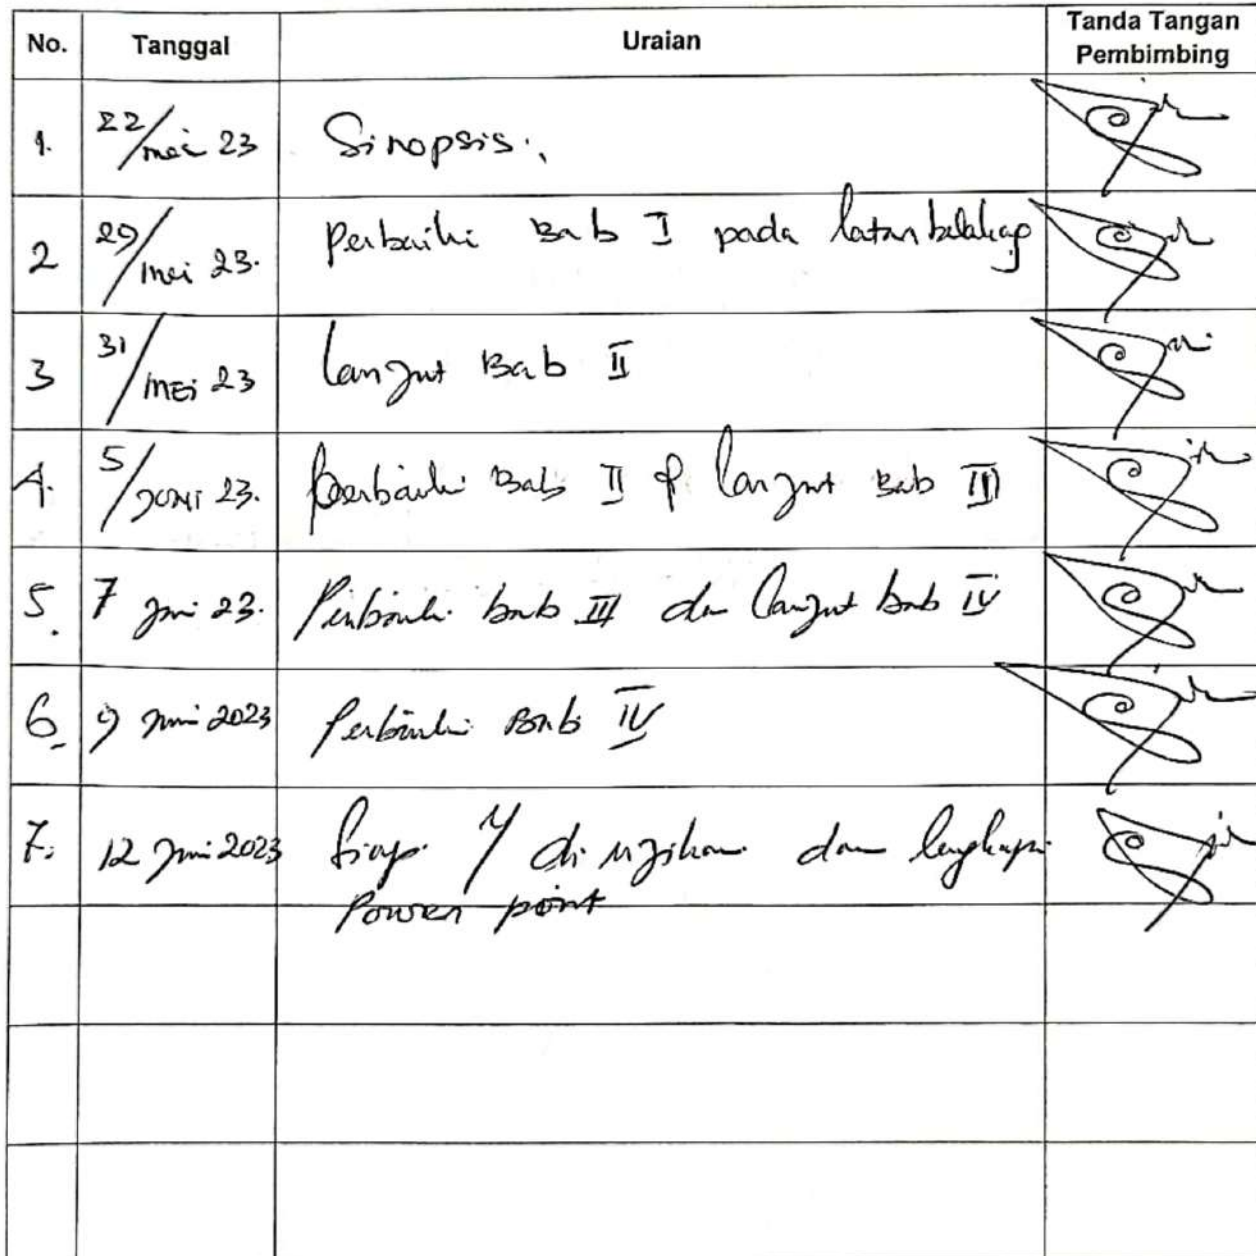 No. Tanggal Uraian Tanda Tangan
Pembimbing
1. 22/mei 23 Sinopsis.
2 29/mei 23. Perbaiki Bab I pada latar belakag
3 31/MEi 23 lanjut Bab II
4. 5/JUNI 23. perbaiki Bab II & lanjut Bab III
5. 7 Juni 23. Perbaiki bab III dan lanjut bab IV
6. 9 Juni 2023 Perbaiki Bab IV
7. 12 Juni 2023 Siap y/ di ujikan dan lengkapi
Power point